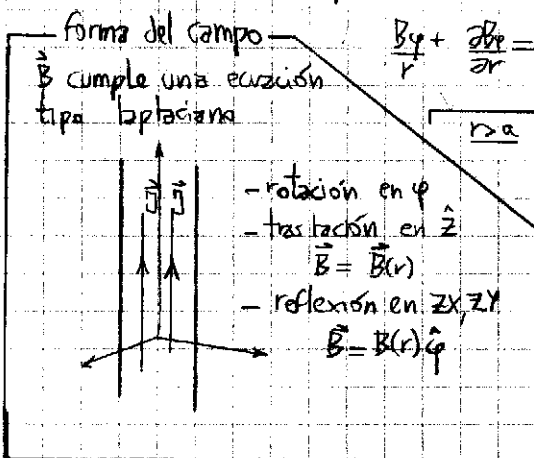 forma del campo
B⃗ cumple una ecuación
tipo laplaciano
J⃗ J⃗
- rotación en φ
- traslación en ẑ
B⃗ = B⃗(r)
- reflexión en ZX, ZY
B⃗ = B(r) φ̂
Bφ/r + ∂Bφ/∂r =
r>a